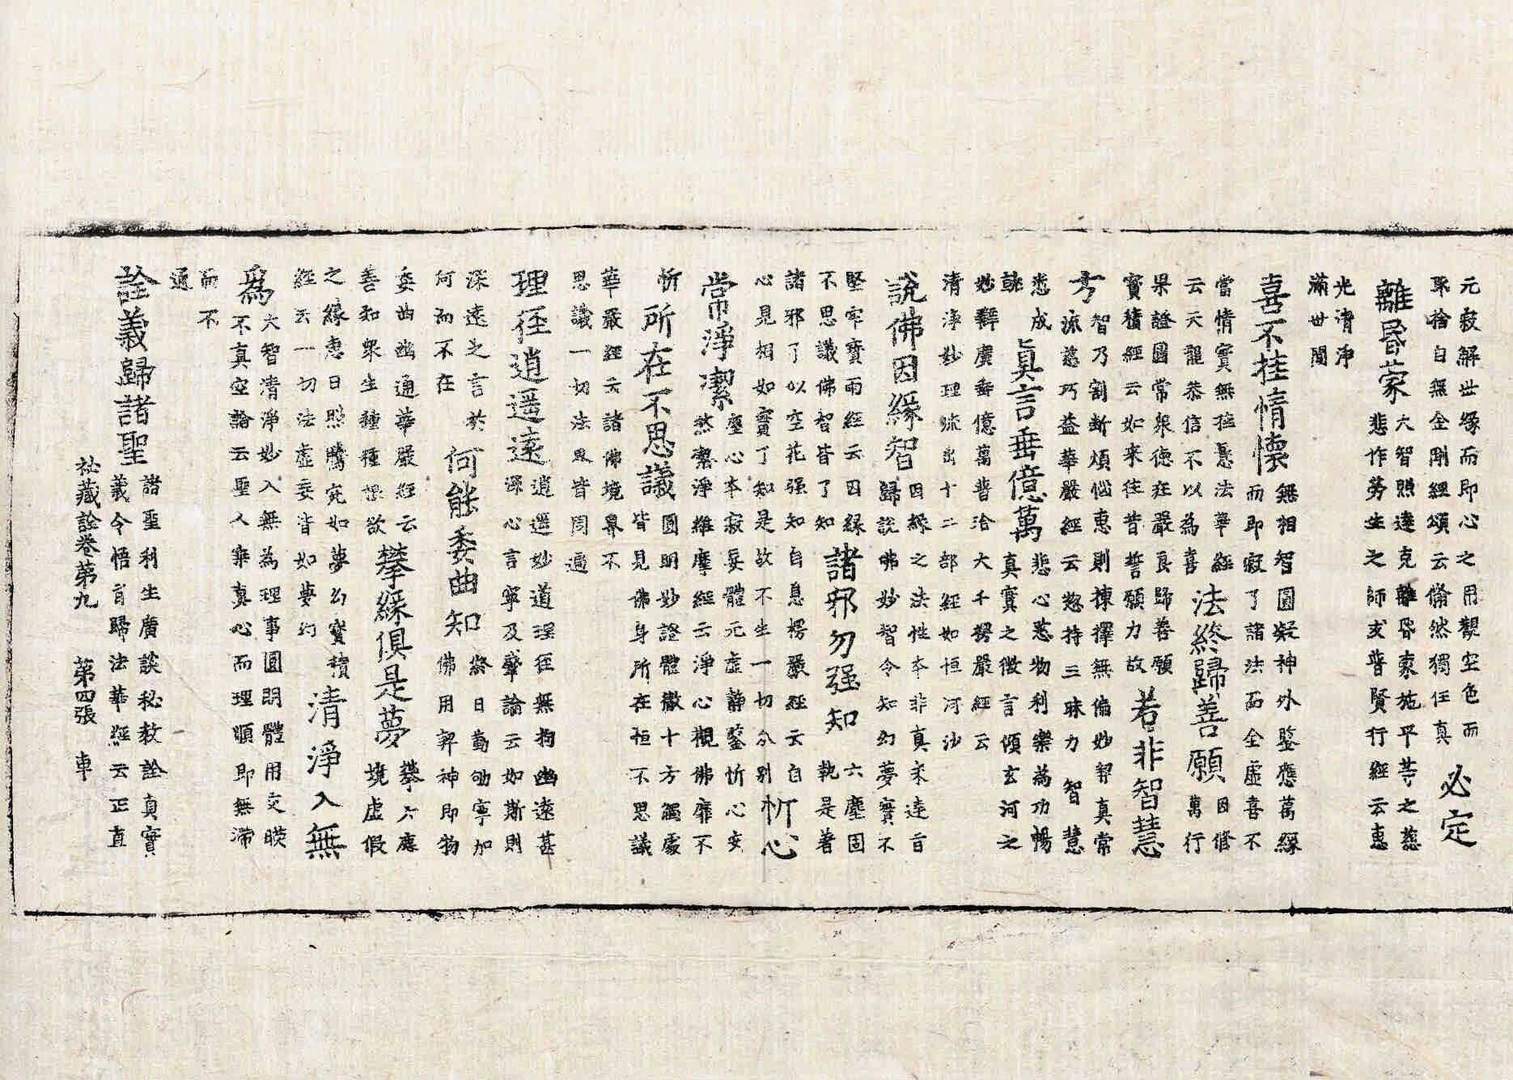 元寂解世緣而即心之用觀空色而
取捨自無金剛經頌云翛然獨任真
必定
離昏蒙
大智照達克離昏蒙施平等之慈
悲作勞生之師友普賢行經云惠
光清淨
滿世間
喜不挂情懷
無相智圓凝神外鑒應萬緣
而即寂了諸法而全虛喜不
當情實無挂懸法華經
云天龍恭信不以為喜
法終歸善願
因修
萬行
果證圓常衆德莊嚴良歸善願
寶積經云如来往昔誓願力故
若非智慧
方
智乃割断煩惱惠則揀擇無偏妙智真常
流慈巧益華嚴經云惣持三昧力智慧
悉成
就
真言垂億萬
悲心慈物利樂為功暢
真實之微言傾玄河之
妙辯廣垂億萬普洽大千楞嚴經云
清淨妙理流出十二部經如恒河沙
說佛因緣智
因緣之法性本非真来達旨
歸說佛妙智令知幻夢實不
堅牢寶雨經云因緣
不思議佛智皆了知
諸邪勿强知
六塵固
執是着
諸邪了似空花强知自息楞嚴經云自
心見相如實了知是故不生一切分別
忻心
常淨潔
塵心本寂妄體元虛靜鑒忻心安
然潔淨維摩經云淨心觀佛靡不
忻
所在不思議
圓明妙證體徹十方觸處
皆見佛身所在恒不思議
華嚴經云諸佛境界不
思議一切法界皆周遍
理徑逍遥遠
逍遥妙道理徑無拘幽遠甚
深心言寧及肇論云如斯則
深遠之言於
何而不在
何能委曲知
終日勤劬寧加
佛用窮神即物
委曲幽通華嚴經云
善知衆生種種樂欲
攀緣俱是夢
攀六塵
境虛假
之緣惠日照騰宛如夢幻寶積
經云一切法虛妄皆如夢幻
清淨入無
為
大智清淨妙入無為理事圓明體用交映
不真空論云聖人乘真心而理順即無滯
而不
通
詮義歸諸聖
諸聖利生廣談秘教詮真實
義令悟旨歸法華經云正直
祕藏詮卷第九 第四張 車